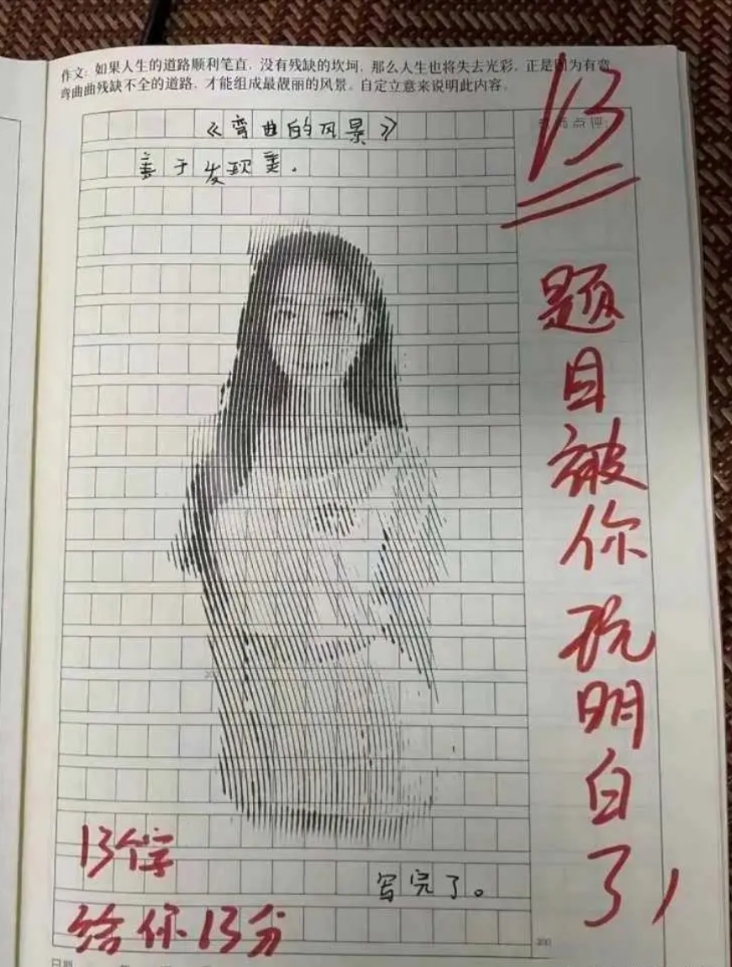 作文：如果人生的道路顺利笔直，没有残缺的坎坷，那么人生也将失去光彩，正是因为有弯
弯曲曲残缺不全的道路，才能组成最靓丽的风景。自定立意来说明此内容。
《弯曲的风景》
善于发现美.
13
题目被你玩明白了,
200
写完了。
13个字
给你13分
300
日期